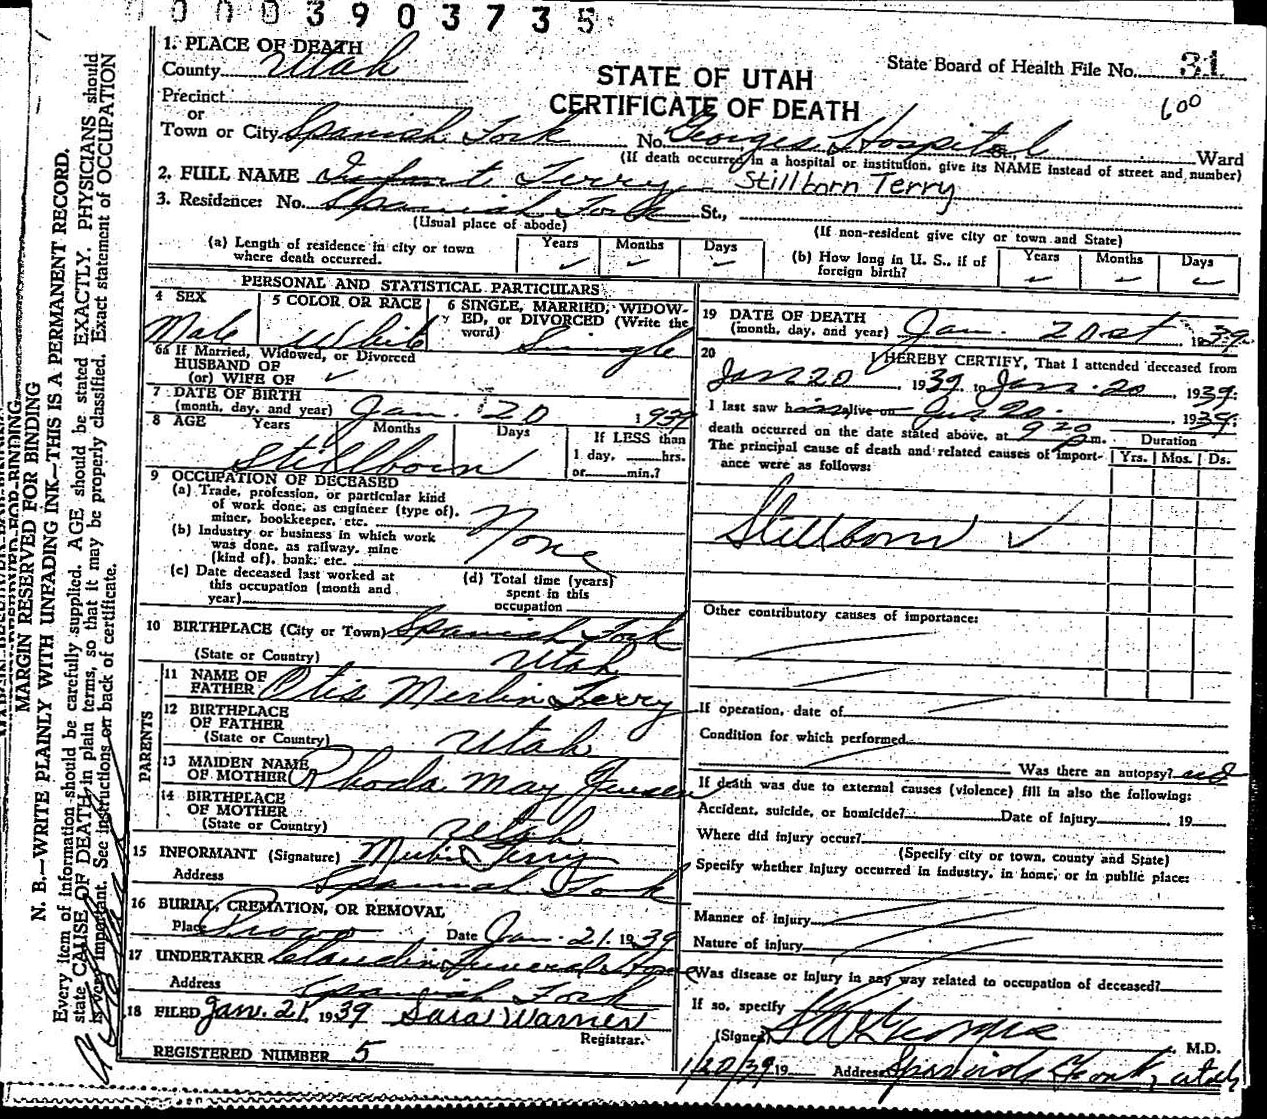 0003903735
1. PLACE OF DEATH
County Utah
STATE OF UTAH
CERTIFICATE OF DEATH
State Board of Health File No. 31
600
Precinct
or
Town or City Spanish Fork No. Georges Hospital Ward
(If death occurred in a hospital or institution, give its NAME instead of street and number)
2. FULL NAME Infant Terry Stillborn Terry
3. Residence: No. Spanish Fork St.,
(Usual place of abode) (If non-resident give city or town and State)
(a) Length of residence in city or town where death occurred. Years ✓ Months ✓ Days ✓
(b) How long in U. S., if of foreign birth? Years ✓ Months ✓ Days ✓
PERSONAL AND STATISTICAL PARTICULARS
4 SEX Male
5 COLOR OR RACE White
6 SINGLE, MARRIED, WIDOW-
ED, or DIVORCED (Write the
word) Single
6a If Married, Widowed, or Divorced
HUSBAND OF
(or) WIFE OF ✓
7 DATE OF BIRTH
(month, day, and year) Jan. 20 1939
8 AGE Years Months Days
Stillborn
If LESS than
1 day, hrs.
or min.?
9 OCCUPATION OF DECEASED
(a) Trade, profession, or particular kind
of work done, as engineer (type of),
miner, bookkeeper, etc.
None
(b) Industry or business in which work
was done, as railway, mine
(kind of), bank, etc.
(c) Date deceased last worked at
this occupation (month and
year)
(d) Total time (years)
spent in this
occupation
10 BIRTHPLACE (City or Town) Spanish Fork
(State or Country) Utah
PARENTS
11 NAME OF
FATHER Otis Merlin Terry
12 BIRTHPLACE
OF FATHER
(State or Country) Utah
13 MAIDEN NAME
OF MOTHER Rhoda May Jensen
14 BIRTHPLACE
OF MOTHER
(State or Country) Utah
15 INFORMANT (Signature) Terry
Address Spanish Fork
16 BURIAL, CREMATION, OR REMOVAL
Place Provo Date Jan. 21. 1939
17 UNDERTAKER Claudin Funeral Home
Address Spanish Fork
18 FILED Jan. 21, 1939 Sara Warner
Registrar.
REGISTERED NUMBER 5
19 DATE OF DEATH
(month, day, and year) Jan. 20st 1939
20 I HEREBY CERTIFY, That I attended deceased from
Jan 20, 1939 to Jan. 20 1939.
I last saw h alive on Jan 20. 1939.
death occurred on the date stated above, at 9 20 P m.
The principal cause of death and related causes of import-
ance were as follows:
Duration
Yrs. Mos. Ds.
Stillborn ✓
Other contributory causes of importance:
If operation, date of
Condition for which performed
Was there an autopsy? no
If death was due to external causes (violence) fill in also the following:
Accident, suicide, or homicide? Date of injury 19
Where did injury occur?
(Specify city or town, county and State)
Specify whether injury occurred in industry, in home, or in public place:
Manner of injury
Nature of injury
Was disease or injury in any way related to occupation of deceased?
If so, specify
(Signed) George M.D.
1/20/39 19 Address Spanish Fork, Utah
MARGIN RESERVED FOR BINDING
N. B.—WRITE PLAINLY WITH UNFADING INK—THIS IS A PERMANENT RECORD.
Every item of information should be carefully supplied. AGE should be stated EXACTLY. PHYSICIANS should
state CAUSE OF DEATH in plain terms, so that it may be properly classified. Exact statement of OCCUPATION
is very important. See instructions on back of certificate.